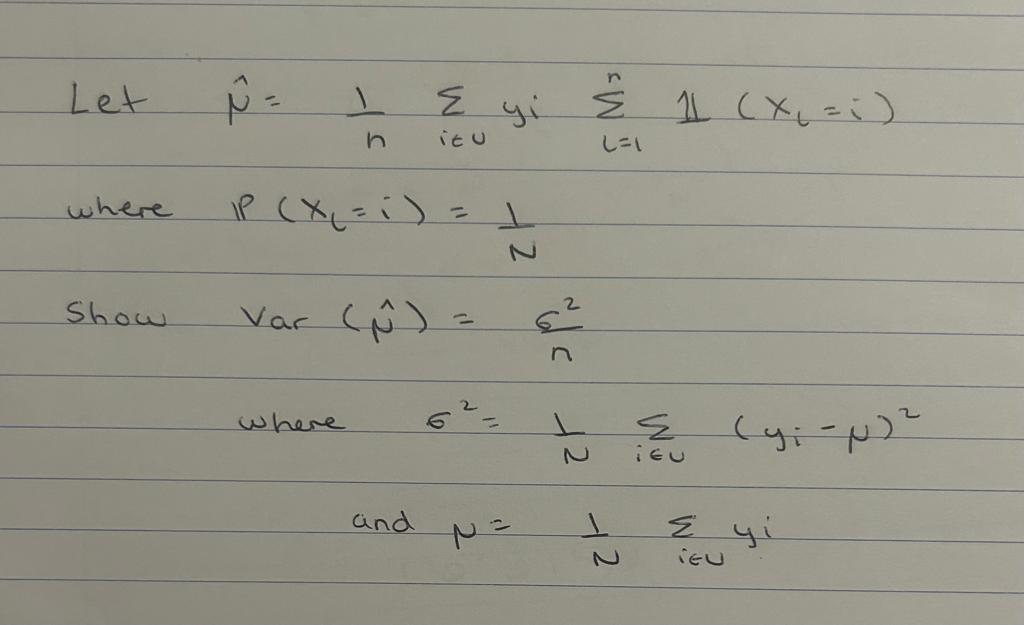 Let μ̂ = 1/n Σ_{i∈U} yi Σ_{l=1}^{n} 𝟙 (X_l = i)
where ℙ (X_l = i) = 1/N
Show Var (μ̂) = σ²/n
where σ² = 1/N Σ_{i∈U} (yi - μ)²
and μ = 1/N Σ_{i∈U} yi